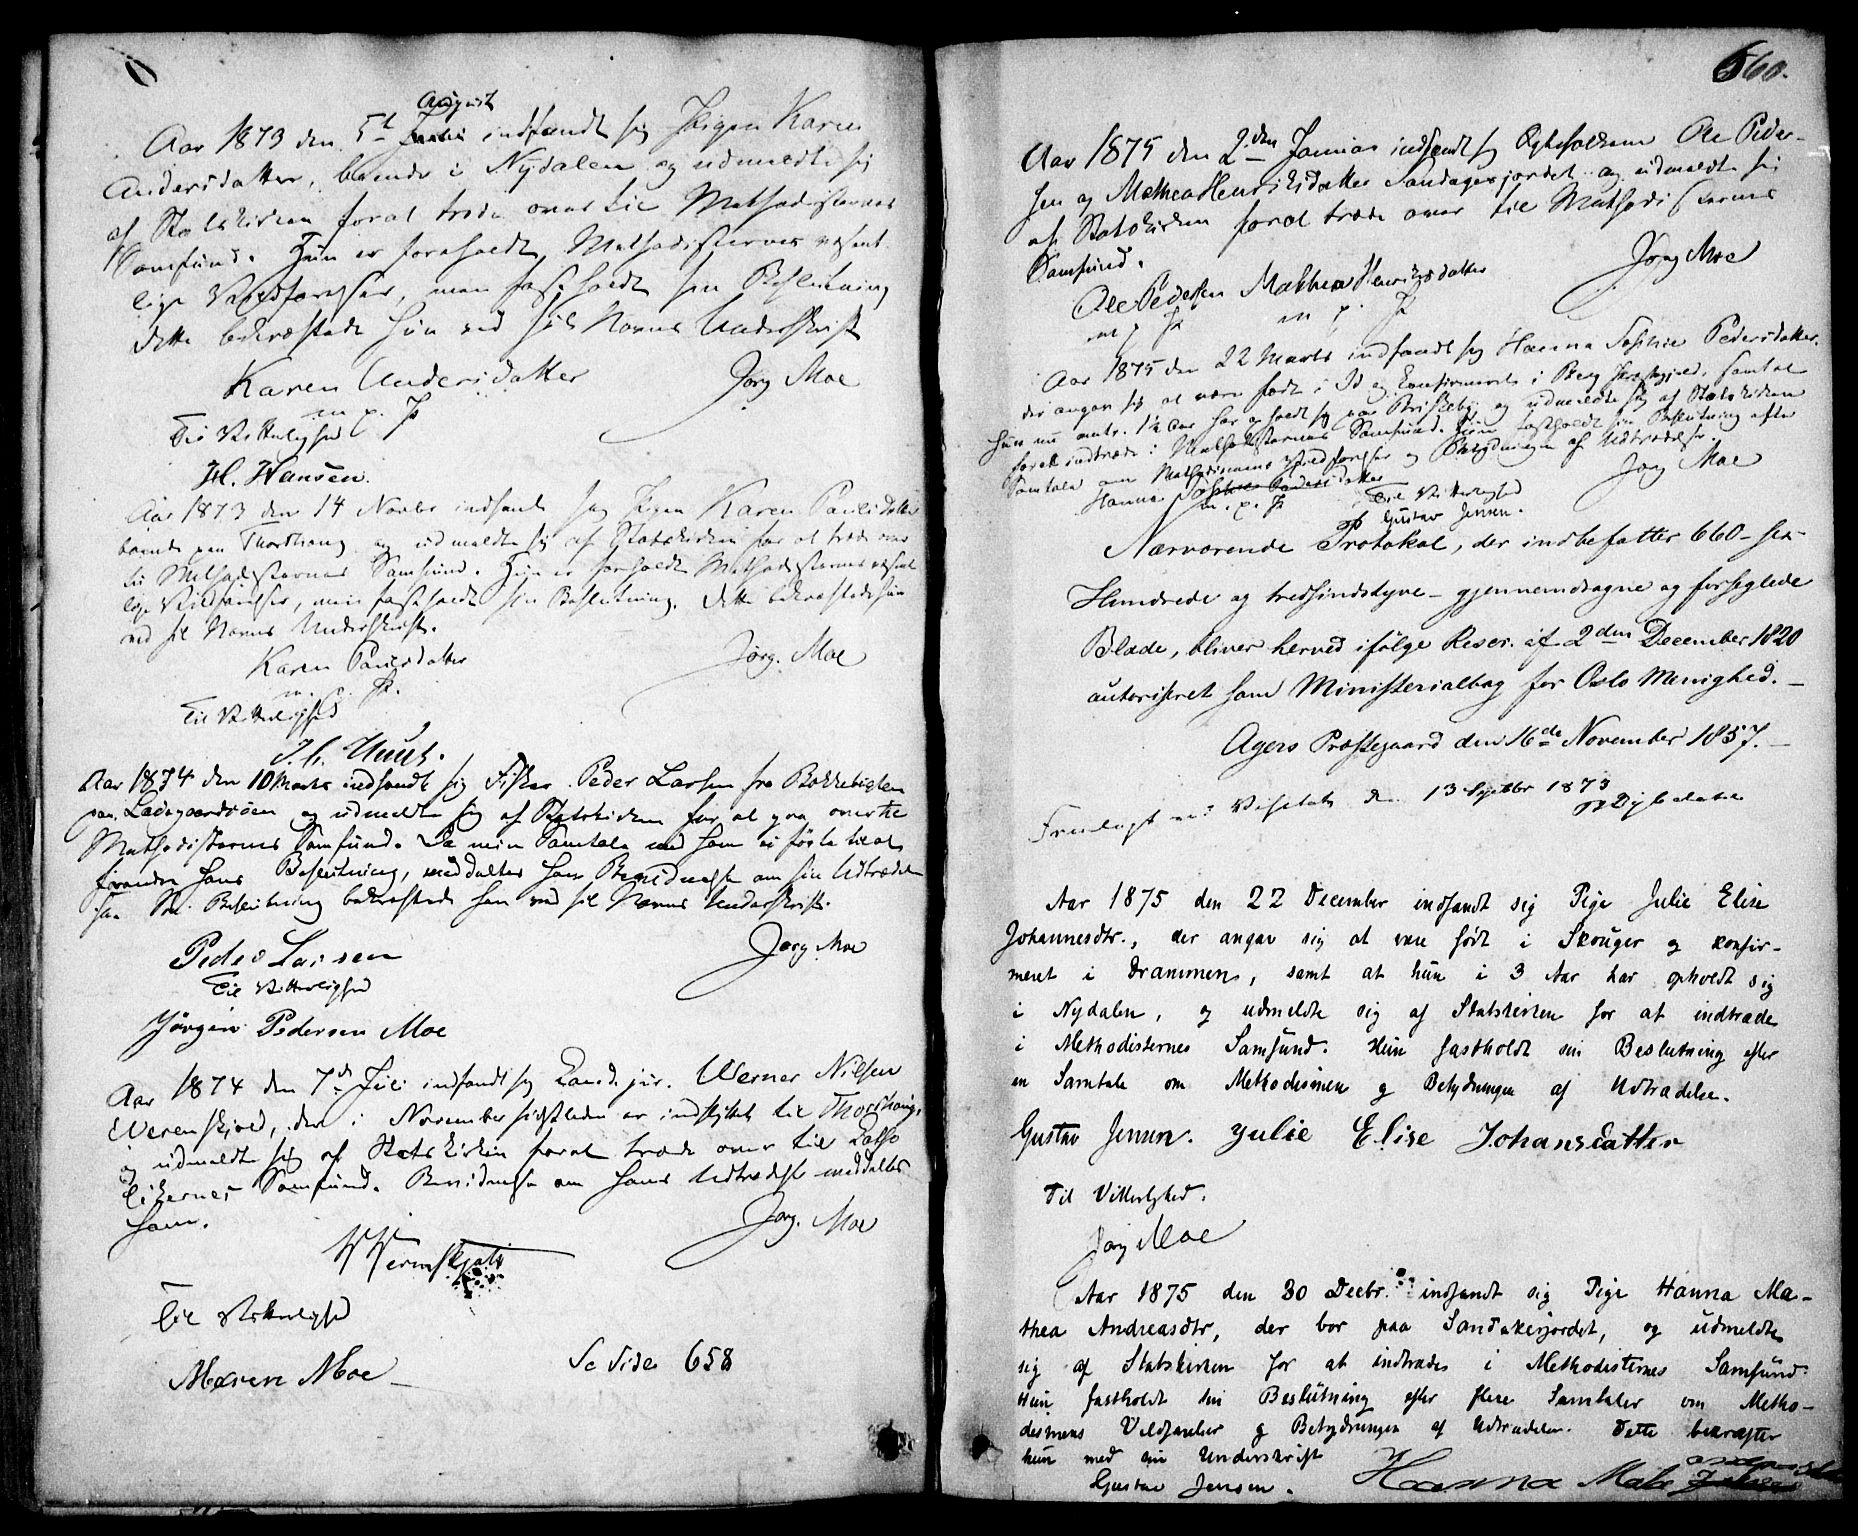 August
Aar 1873 den 5t Juli indfandt sig Pigen Karen
Andersdatter, boende i Nydalen og udmeldte sig
af Statskirken forat træde over til Methodisternes
Samfund. Hun er foreholdt Methodisternes væsent-
lige Vildfarelser, men fastholdt sin Beslutning
dette bekræftede hun ved sit Navns Underskrift
Karen Andersdatter Jørg Moe
m. p. P.
Til Vitterlighed
H. Hansen.
Aar 1873 den 14 Novbr indfandt sig Pigen Karen Paulsdatter
boende paa Thorshaug og udmeldte sig af Statskirken for at træde over
til Methodisternes Samfund. Hun er forholdt Methodisternes væsent
lige Vildfarelser, men fastholdt sin Beslutning. Dette bekræftede hun
ved sit Navns Underskrift.
Karen Paulsdatter Jørg. Moe
m. p. P.
Til Vitterlighed
Aar 1874 den 10 Marts indfandt sig Fisker Peder Larsen fra Bokkebielen
paa Ladegaardsøen og udmeldte sig af Statskirken for at gaa over til
Methodisternes Samfund. Da min Samtale med ham ei førte til at
forandre hans Beslutning, meddeltes ham Bevidnelse om sin Udtrædelse
Sin Beslutning bekræftede han ved sit Navns Underskrift.
Peder Larsen Jørg Moe
Til Vitterlighed
Jørgen Pedersen Moe
Aar 1874 den 7d Juli indfandt sig Cand. jur. Werner Nilsen
Werenskjold, der i November sidstleden er indflyttet til Thorshaug,
og udmeldte sig af Statskirken forat træde over til Catho
likernes Samfund. Bevidnelse om hans Udtrædelse meddeltes
ham. Jørg. Moe
W Werenskjold
Til Vitterlighed
Maren Moe
Se Side 658
660.
Aar 1875 den 2den Januar indfandt sig Ægtefolkene Ole Peder-
sen og Mathea Henriksdatter Sandagerjordet og udmeldte sig
af Statskirken forat træde over til Methodisternes
Samfund. Jørg Moe
Ole Pedersen Mathea Henriksdatter
m p P m p. P
Aar 1875 den 22 Marts indfandt sig Hanna Sophie Pedersdatter,
der angav sig at være født i Id og Confirmeret i Berg Præstegjeld, samt at
hun nu omtr. 1½ Aar har opholdt sig paa Briskeby og udmeldte sig af Statskirken
forat indtræde i Methodisternes Samfund. Hun fastholdt sin Beslutning efter
Samtale om Methodismens Vildfarelser og Betydningen af Udtrædelse.
Hanna Sophie Pedersdatter Jørg Moe
m. p. P Til Vitterlighed
Gustav Jensen.
Nærværende Protokol, der indbefatter 660 - sex-
Hundrede og tredsindstyve - gjennemdragne og forseglede
Blade, bliver herved ifølge Rescr. af 2den December 1820
autoriseret som Ministerialbog for Oslo Menighed. -
Agers Præstegaard den 16de November 1857. -
Fremlagt ved Visitats den 13 Septbr 1873
Aar 1875 den 22 December indfandt sig Pige Julie Elise
Johannesdtr., der angav sig at være født i Skouger og konfir-
meret i Drammen, samt at hun i 3 Aar har opholdt sig
i Nydalen, og udmeldte sig af Statskirken for at indtræde
i Methodisternes Samfund. Hun fastholdt sin Beslutning efter
en Samtale om Methodismen og Betydningen af Udtrædelse.
Gustav Jensen. Julie Elise Johansdatter
Til Vitterlighed.
Jørg Moe
Aar 1875 den 30 Decbr. indfandt sig Pige Hanna Ma-
thea Andreasdtr, der bor paa Sandakerjordet, og udmeldte
sig af Statskirken for at indtræde i Methodisternes Samfund.
Hun fastholdt sin Beslutning efter flere Samtaler om Metho-
dismens Vildfarelser og Betydningen af Udtrædelsen. Dette bekræfter
hun med sin Underskrift
Gustav Jensen. Hanna Mate